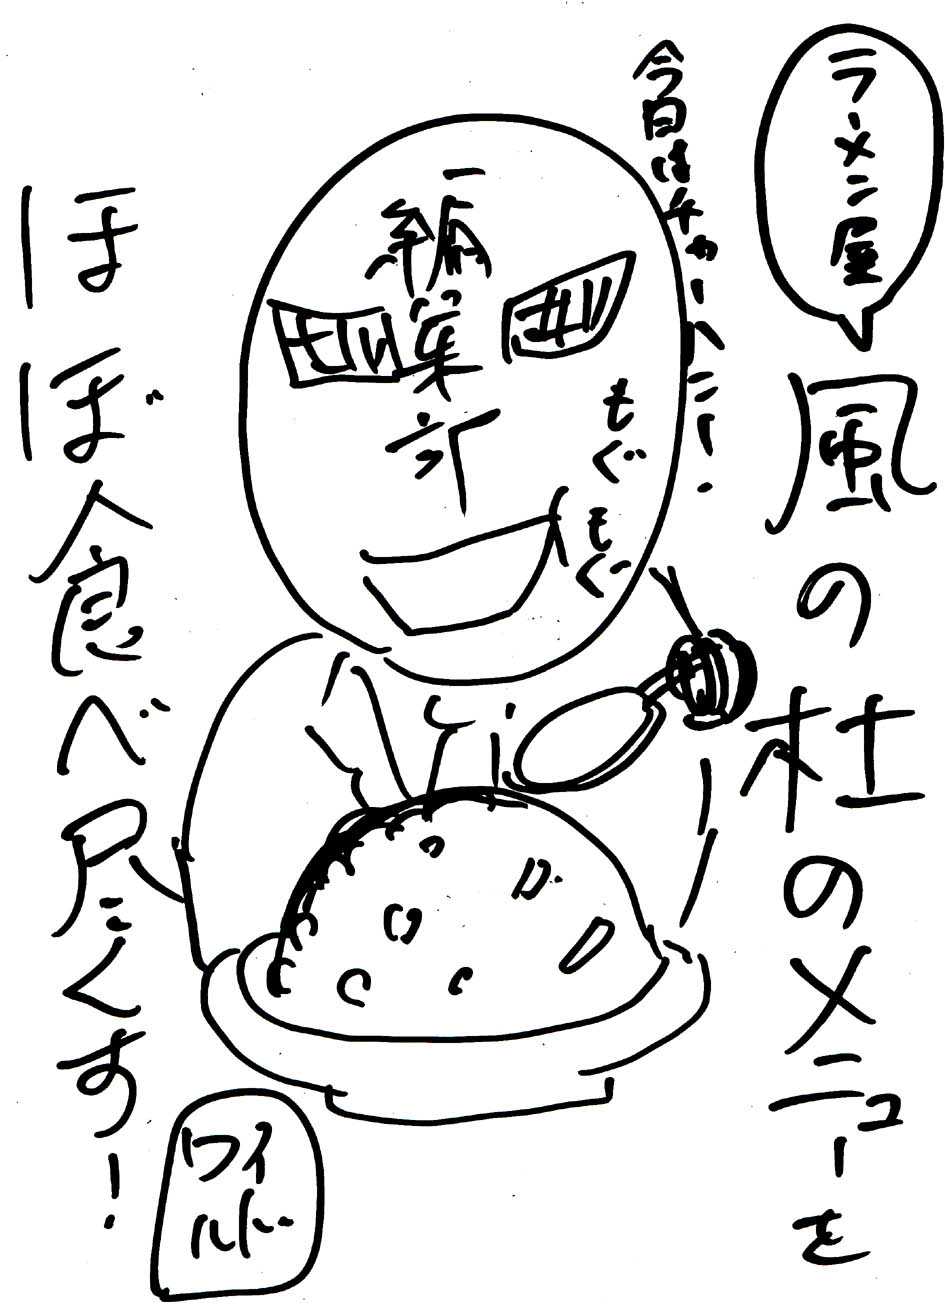 ラーメン屋
風の杜のメニューを
今日はチャーハンニー!
編集部
もぐ
もぐ
ほぼ食べ尽くす!
ワイ
ルド